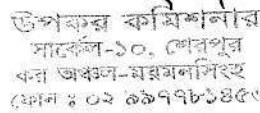 উপকর কমিশনার
সার্কেল-১০, শেরপুর
কর অঞ্চল-ময়মনসিংহ
ফোন : ০২ ৯৯৭৭৮১৪৫৫